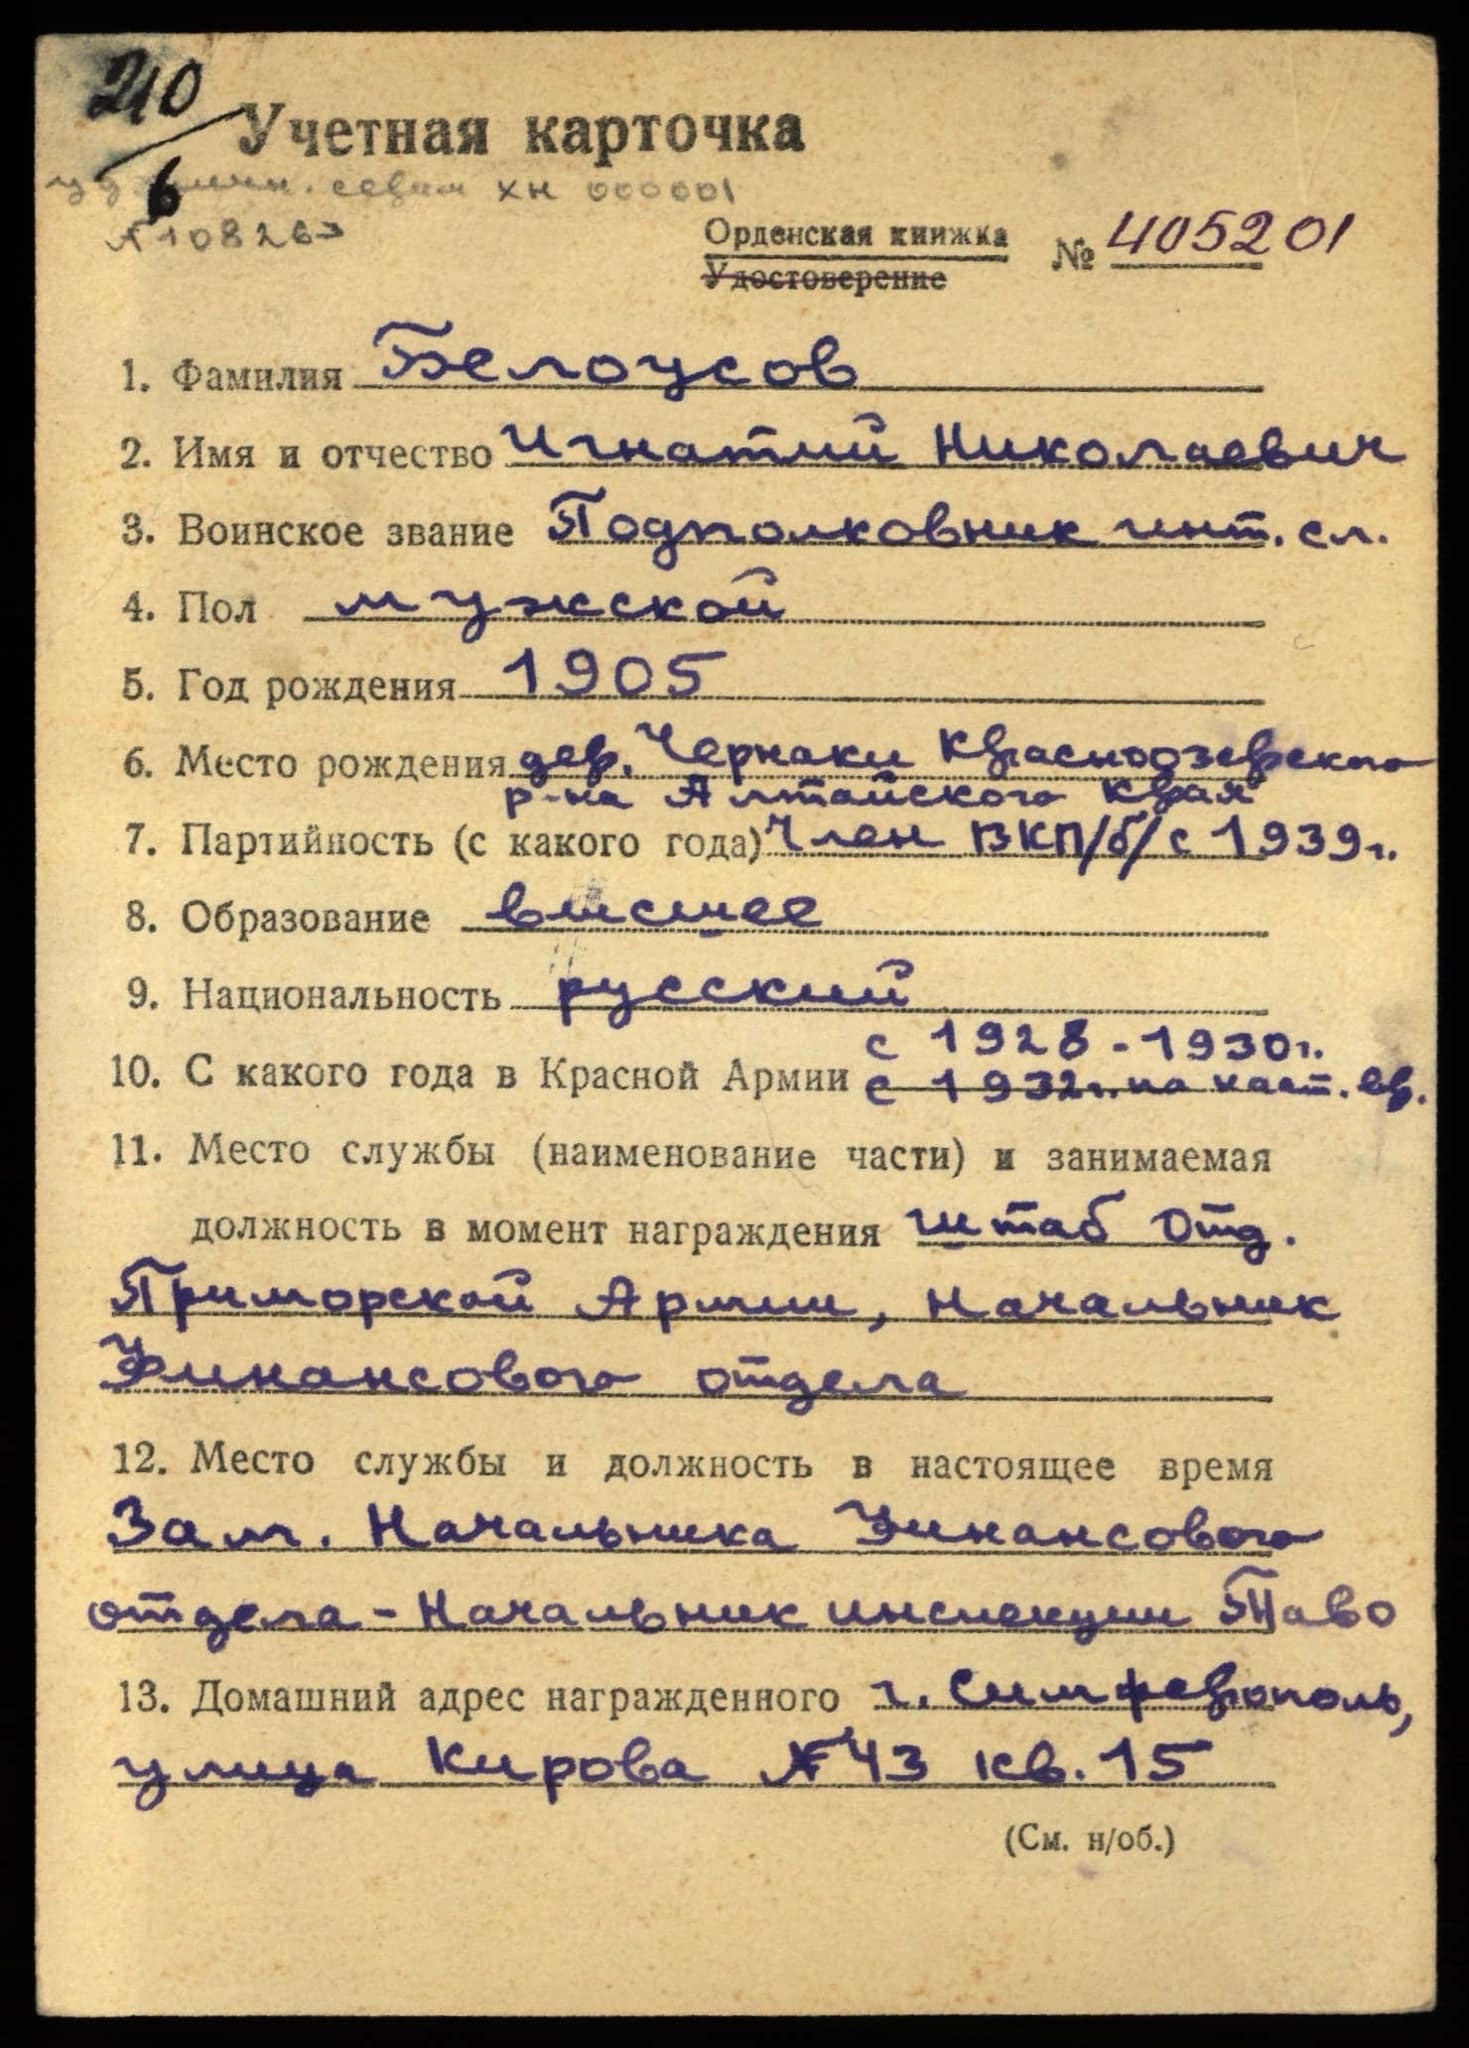 210
6
Учетная карточка
ХН 000001
Орденская книжка № 405201
Удостоверение
1. Фамилия Белоусов
2. Имя и отчество Игнатий Николаевич
3. Воинское звание Подполковник инт. сл.
4. Пол мужской
5. Год рождения 1905
6. Место рождения дер. Чернаки Краснозерского
р-на Алтайского Края
7. Партийность (с какого года) Член ВКП/б/ с 1939 г.
8. Образование высшее
9. Национальность русский
с 1928 - 1930 г.
10. С какого года в Красной Армии с 1932 г. по наст. вр.
11. Место службы (наименование части) и занимаемая
должность в момент награждения штаб Отд.
Приморской Армии, Начальник
Финансового отдела
12. Место службы и должность в настоящее время
Зам. Начальника Финансового
отдела - Начальник инспекции ТавВО
13. Домашний адрес награжденного г. Симферополь,
улица Кирова № 43 кв. 15
(См. н/об.)